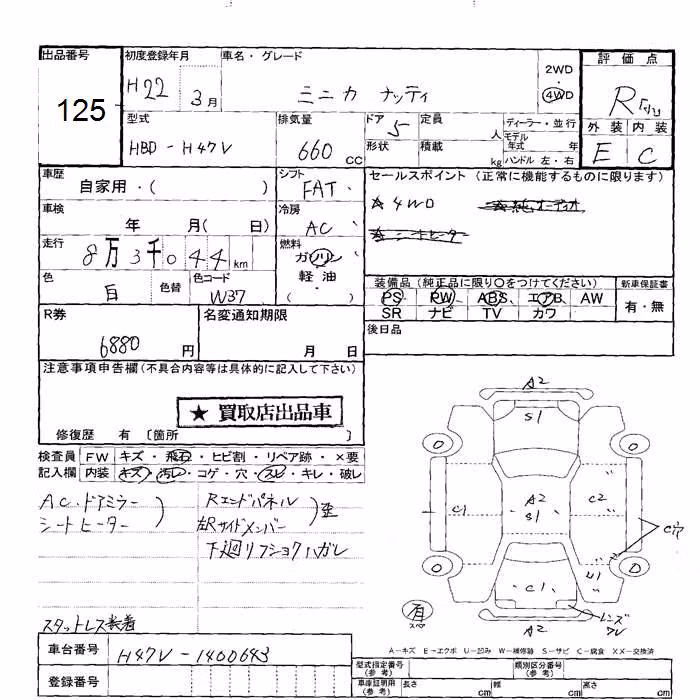 出品番号
125
初度登録年月
H22 3月
車名・グレード
ミニカ ナッティ
2WD
・
4WD
評価点
R
外装 内装
E C
型式
HBD-H47V
排気量
660 cc
ドア 5
定員 人
形状
積載 kg
ディーラー・並行
モデル年式 年
ハンドル 左・右
車歴
自家用・( )
シフト
FAT
セールスポイント (正常に機能するものに限ります)
☆4WD ☆純オーディオ
☆シートヒーター
車検
年 月( 日)
冷房
AC
走行
8万3千044km
燃料
ガソリン
軽・油
( )
色
白
色替
色コード
W37
装備品 (純正品に限り○をつけてください)
PS PW ABS エアB AW
SR ナビ TV カワ
新車保証書
有・無
R券
6880円
名変通知期限
月 日
後日品
注意事項申告欄(不具合内容等は具体的に記入して下さい)
★ 買取店出品車
修復歴 有 〔箇所 〕
検査員
記入欄
FW キズ・飛石・ヒビ割・リペア跡・×要
内装 キズ・汚レ・コゲ・穴・スレ・キレ・破レ
AC・ドアミラー
シートヒーター
Rエンドパネル
左Rサイドメンバー
歪
下廻リフショクハガレ
スタットレス装着
A2
S1
C1
A2
S1
C2
C穴
U1
C1
レンズ
ワレ
A2
有
スペア
A-キズ E-エクボ U-凹み W-補修跡 S-サビ C-腐食 XX-交換済
車台番号
H47V-1400643
登録番号
型式指定番号
(参考)
類別区分番号
(参考)
車庫証明用
(参考)
長さ cm
幅 cm
高さ cm